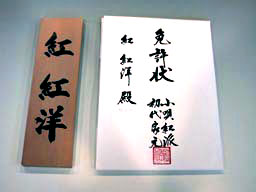 紅
紅
洋
免許状
紅 紅洋 殿
小唄紅派
初代家元